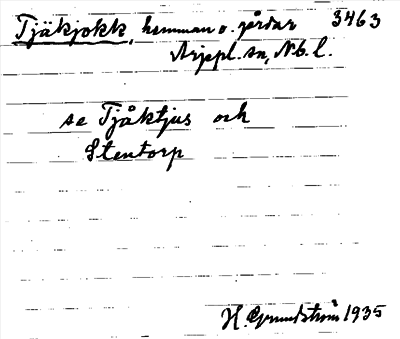 Tjäkjokk, hemman o. gårdar 3463
Arjepl. sn, Nb. l.
se Tjåktjus och
Stentorp
H. Grundström 1935